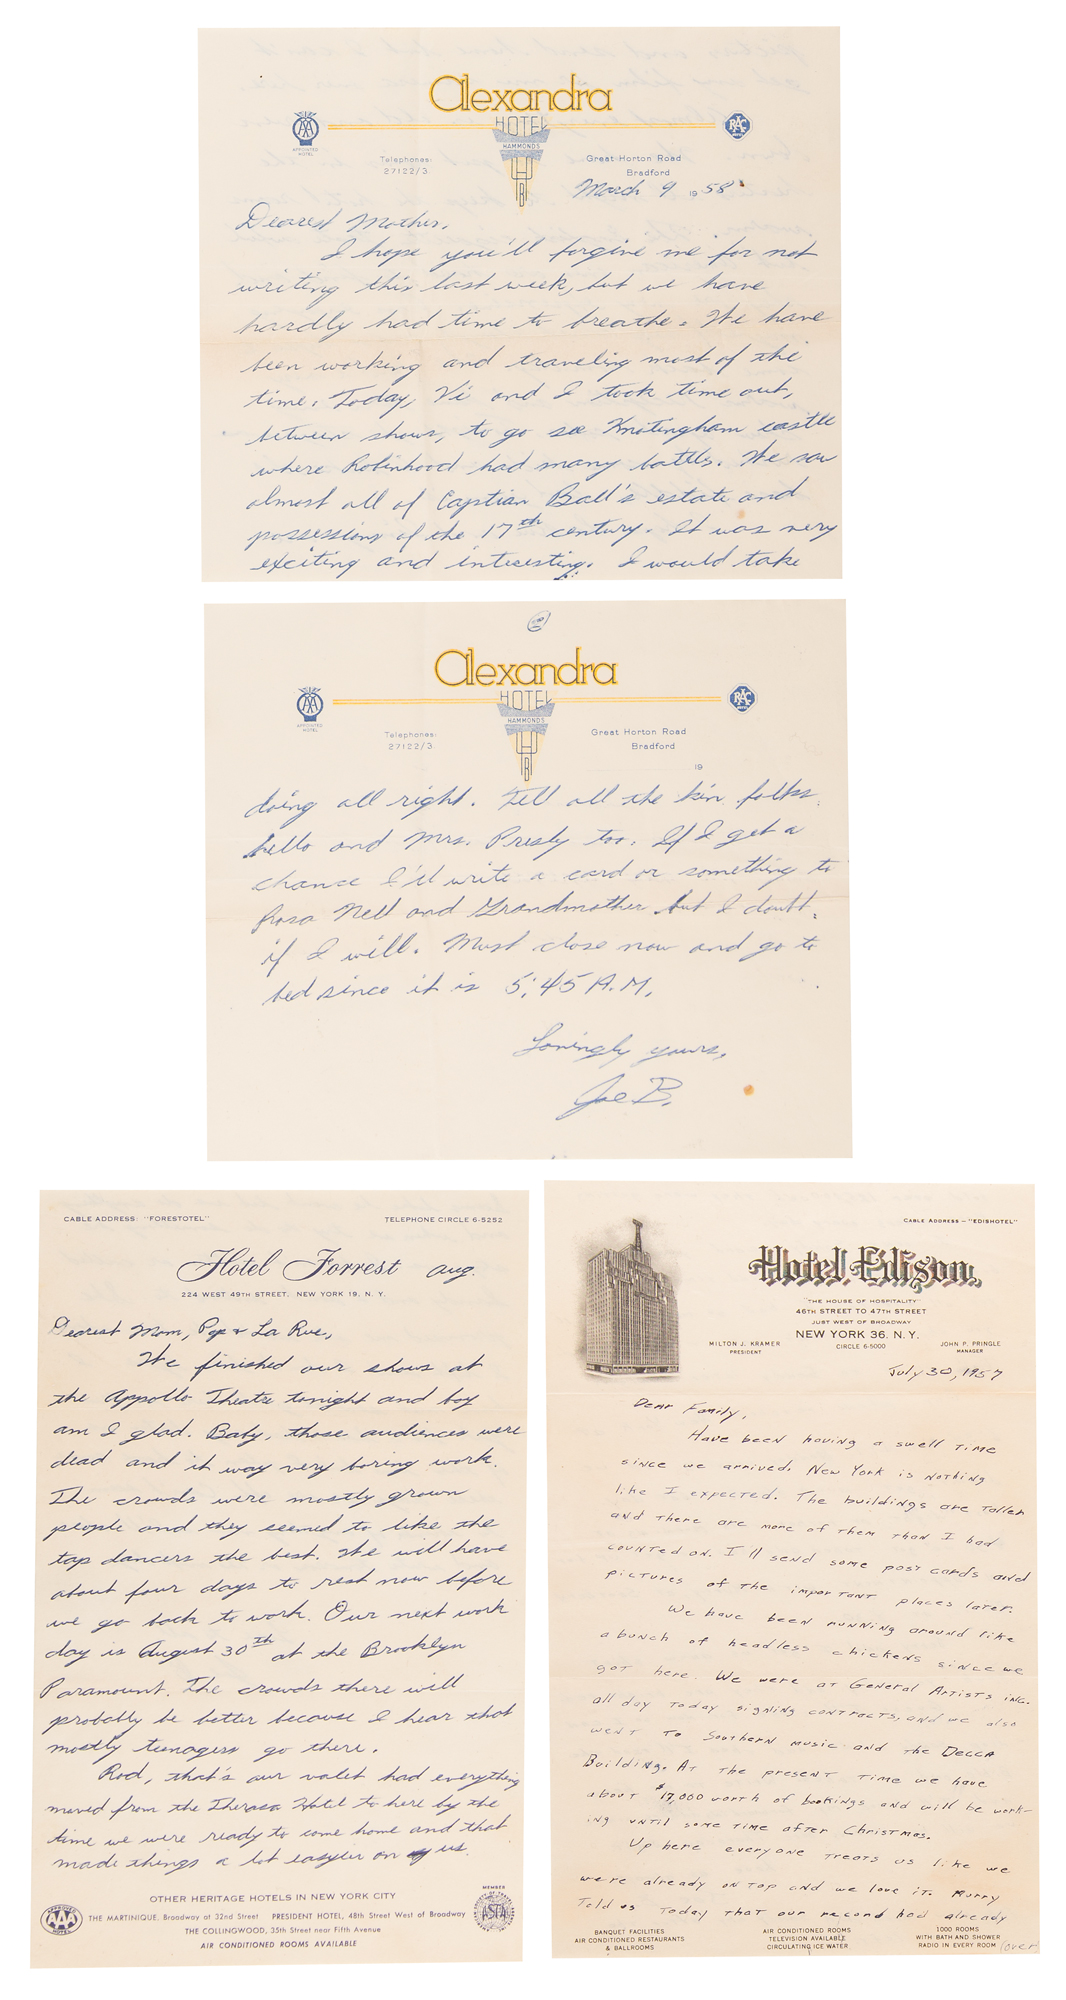 Alexandra
HOTEL
HAMMONDS
H
B
AA
APPOINTED
HOTEL
RAC
Telephones:
27122/3.
Great Horton Road
Bradford
March 9 1958
Dearest Mother,
I hope you'll forgive me for not
writing this last week, but we have
hardly had time to breathe. We have
been working and traveling most of the
time. Today, Vi and I took time out,
between shows, to go see Knotingham castle
where Robinhood had many battles. We saw
almost all of Captian Ball's estate and
possessions of the 17th century. It was very
exciting and interesting. I would take
Alexandra
HOTEL
HAMMONDS
H
B
AA
APPOINTED
HOTEL
RAC
Telephones:
27122/3.
Great Horton Road
Bradford
19
doing all right. Tell all the kin folks
hello and Mrs. Presly too. If I get a
chance I'll write a card or something to
Rosa Nell and Grandmother but I doubt
if I will. Must close now and go to
bed since it is 5:45 A.M.
Lovingly yours,
Joe B.
CABLE ADDRESS: "FORESTOTEL"
TELEPHONE CIRCLE 6-5252
Hotel Forrest Aug.
224 WEST 49TH STREET, NEW YORK 19, N. Y.
Dearest Mom, Pop & La Rue,
We finished our shows at
the Appollo Theatre tonight and boy
am I glad. Baby, those audiences were
dead and it way very boring work.
The crowds were mostly grown
people and they seemed to like the
tap dancers the best. We will have
about four days to rest now before
we go back to work. Our next work
day is August 30th at the Brooklyn
Paramount. The crowds there will
probably be better because I hear that
mostly teenagers go there.
Rod, that's our valet had everything
moved from the Theresa Hotel to here by the
time we were ready to come home and that
made things a lot easyier on us.
OTHER HERITAGE HOTELS IN NEW YORK CITY
THE MARTINIQUE, Broadway at 32nd Street PRESIDENT HOTEL, 48th Street West of Broadway
THE COLLINGWOOD, 35th Street near Fifth Avenue
AIR CONDITIONED ROOMS AVAILABLE
APPROVED
AAA
HOTEL
MEMBER
ASTA
CABLE ADDRESS - "EDISHOTEL"
Hotel Edison
"THE HOUSE OF HOSPITALITY"
46TH STREET TO 47TH STREET
JUST WEST OF BROADWAY
NEW YORK 36. N.Y.
CIRCLE 6-5000
MILTON J. KRAMER
PRESIDENT
JOHN P. PRINGLE
MANAGER
July 30, 1957
Dear Family,
Have been having a swell time
since we arrived. New York is nothing
like I expected. The buildings are taller
and there are more of them than I had
counted on. I'll send some post cards and
pictures of the important places later.
We have been running around like
a bunch of headless chickens since we
got here. We were at General Artists inc.
all day today signing contracts, and we also
went to Southern music and the Decca
Building. At the present time we have
about $17,000 worth of bookings and will be work-
ing until some time after Christmas.
Up here everyone treats us like we
were already on top and we love it. Murry
told us today that our record had already
BANQUET FACILITIES
AIR CONDITIONED RESTAURANTS
& BALLROOMS
AIR CONDITIONED ROOMS
TELEVISION AVAILABLE
CIRCULATING ICE WATER
1000 ROOMS
WITH BATH AND SHOWER
RADIO IN EVERY ROOM
(over